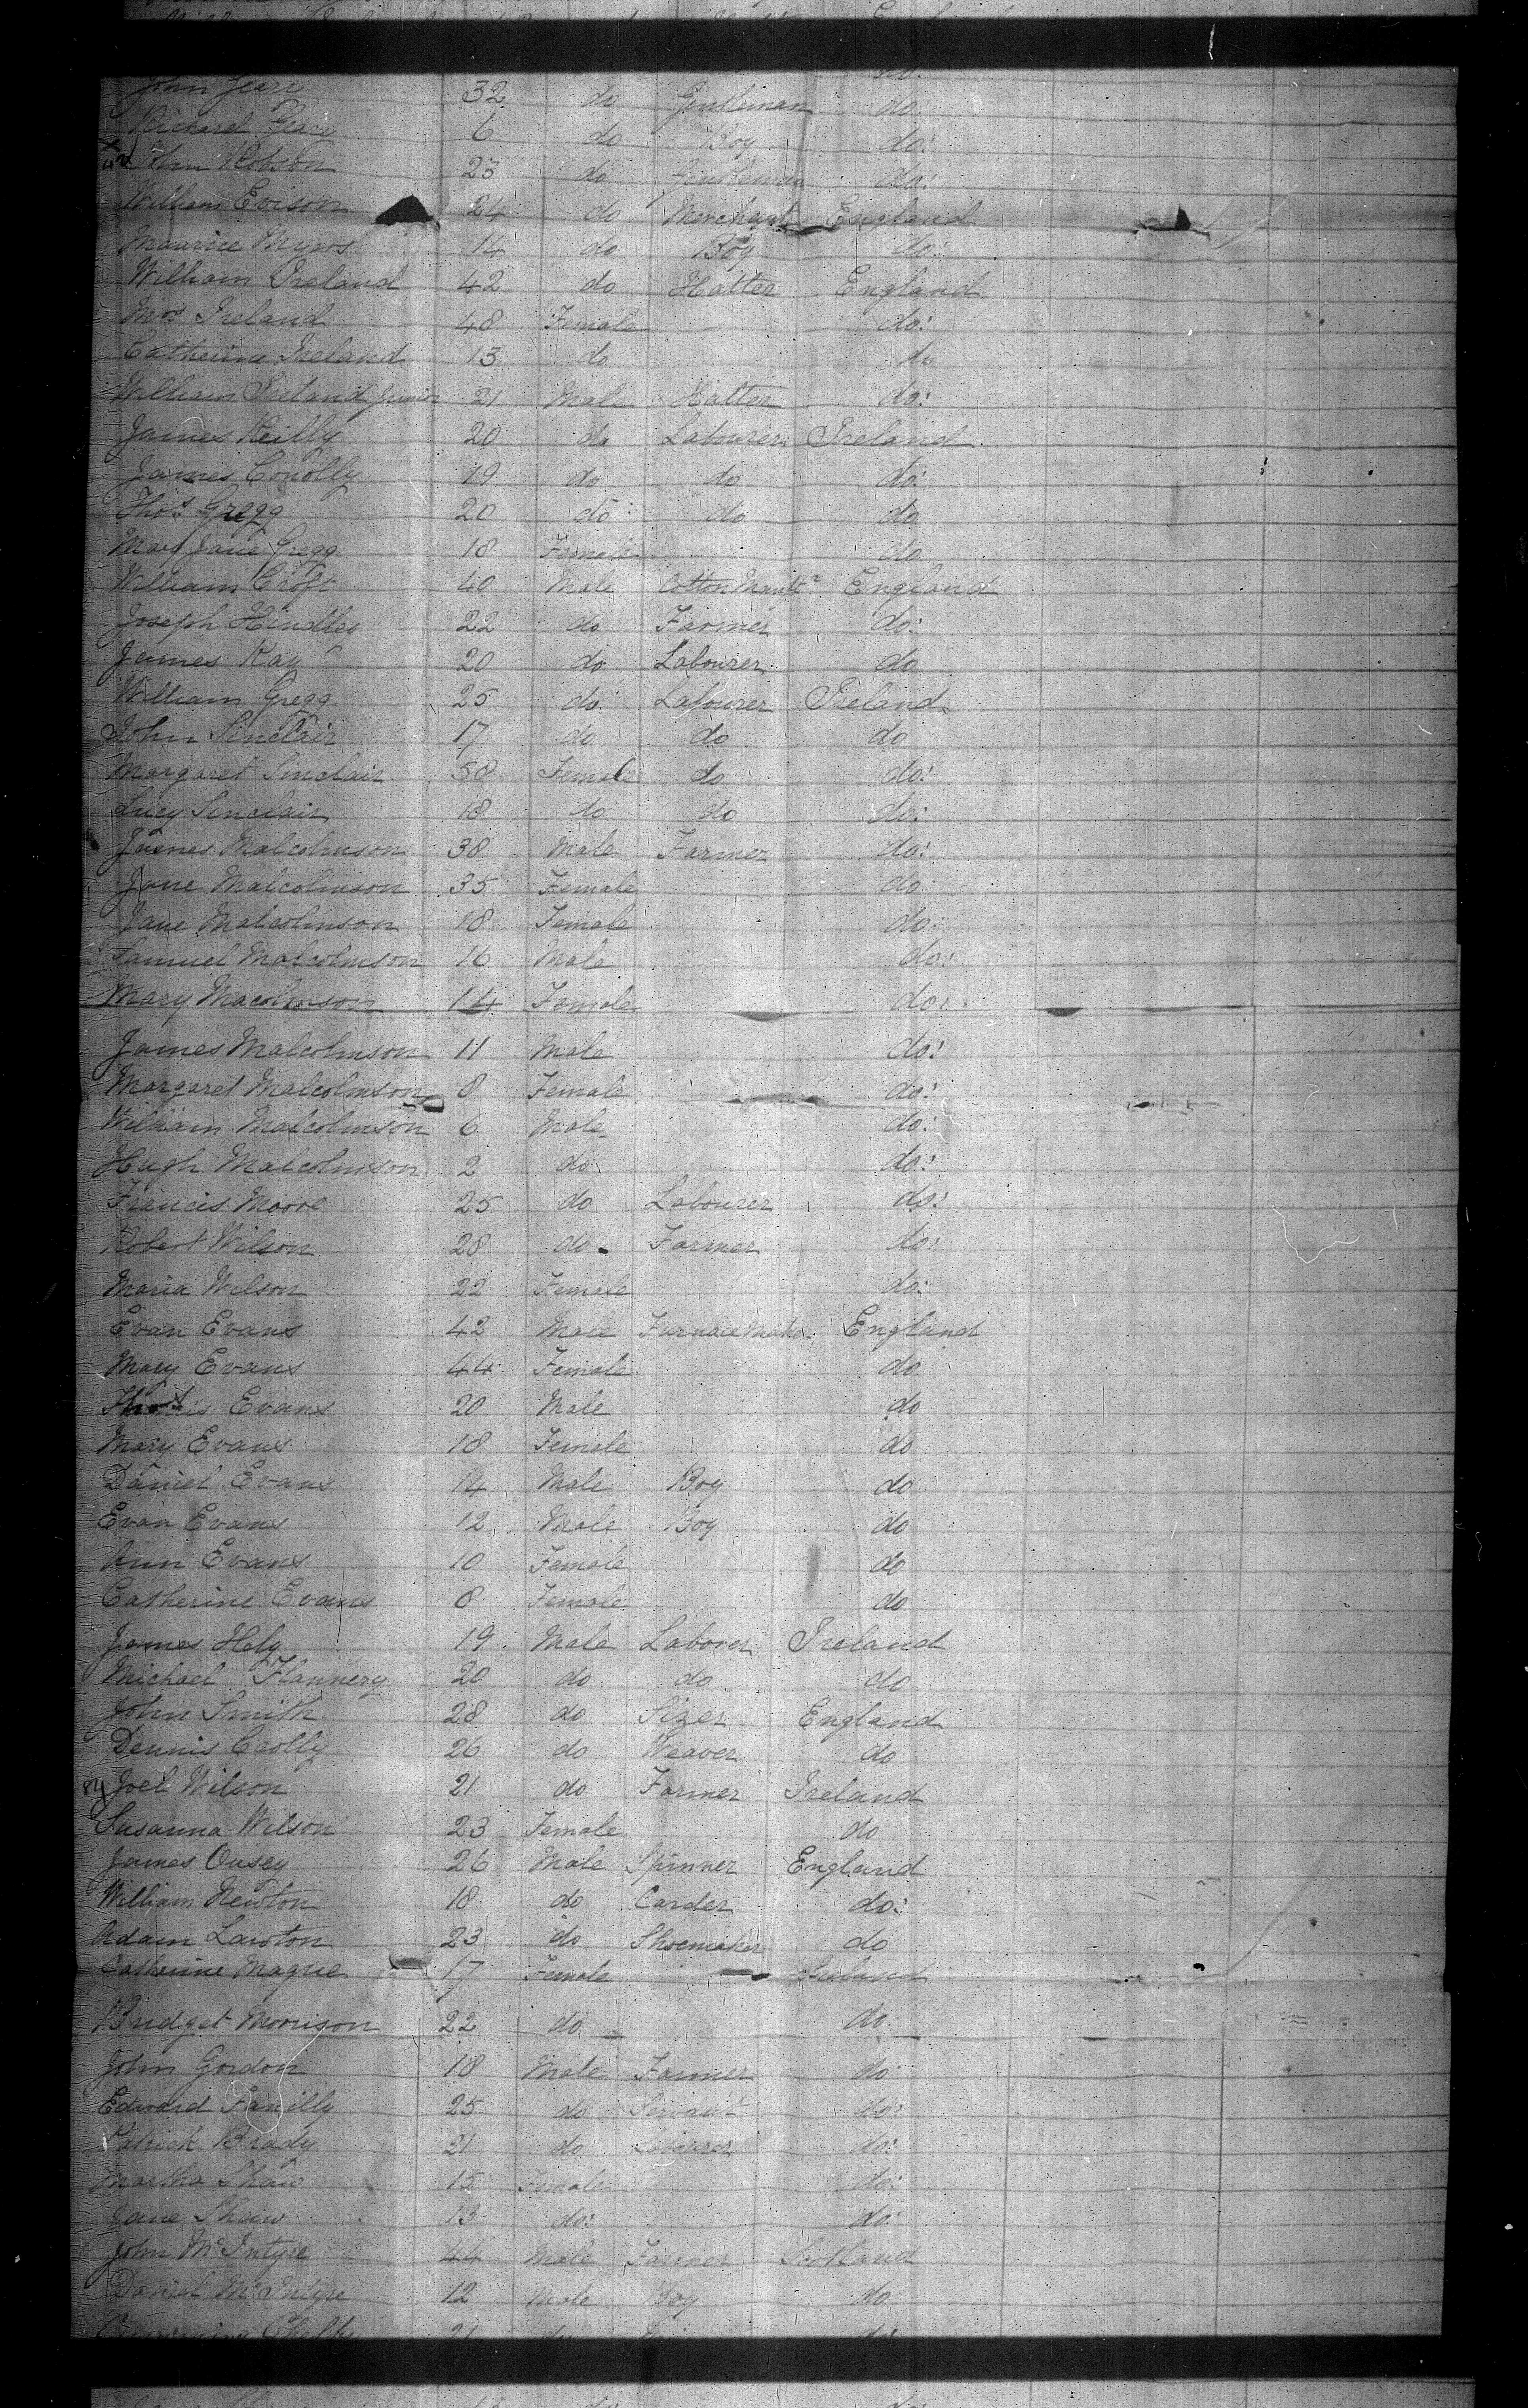 John Geary 32 do Gentleman do
Richard Geary 6 do Boy do:
John Robson 23 do Gentleman do:
William Evison 24 do Merchant England
Maurice Myers 14 do Boy do:
William Ireland 42 do Hatter England
Mrs Ireland 48 Female do:
Catherine Ireland 13 do do
William Ireland Junior 21 Male Hatter do:
James Reilly 20 do Labourer Ireland
James Conolly 19 do do do:
Thos Gregg 20 do do do
Mary Jane Gregg 18 Female do
William Croft 40 Male Cotton Manftr England
Joseph Hindley 22 do Farmer do:
James Kay 20 do Labourer do
William Gregg 25 do Labourer Ireland
John Sinclair 17 do do do
Margaret Sinclair 58 Female do do:
Lucy Sinclair 18 do do do:
James Malcolmson 38 Male Farmer do:
Jane Malcolmson 35 Female do
Jane Malcolmson 18 Female do:
Samuel Malcolmson 16 Male do:
Mary Macolmson 14 Female do:
James Malcolmson 11 Male do:
Margaret Malcolmson 8 Female do:
William Malcolmson 6 Male do:
Hugh Malcolmson 2 do do:
Francis Moore 25 do Labourer do:
Robert Wilson 28 do Farmer do:
Maria Wilson 22 Female do:
Evan Evans 42 Male Furnace Maker England
Mary Evans 44 Female do
Evans 20 Male do
Mary Evans 18 Female do
Daniel Evans 14 Male Boy do
Evan Evans 12 Male Boy do
Ann Evans 10 Female do
Catherine Evans 8 Female do
James Holy 19 Male Laborer Ireland
Michael Flannery 20 do do do
John Smith 28 do Sizer England
Dennis 26 do Weaver do
Joel Wilson 21 do Farmer Ireland
Susanna Wilson 23 Female do
James Ousey 26 Male Spinner England
William Newton 18 do Carder do:
Adam Lawton 23 do Shoemaker do
Catherine Magrie 17 Female Ireland
Bridget Morrison 22 do do
John Gordon 18 Male Farmer do
Edward 25 do Servant do:
Patrick Brady 21 do Labourer do:
Martha Shaw 15 Female do:
Jane Shaw 13 do: do:
John McIntyre 44 Male Farmer Scotland
Daniel McIntyre 12 Male Boy do
21 do do: